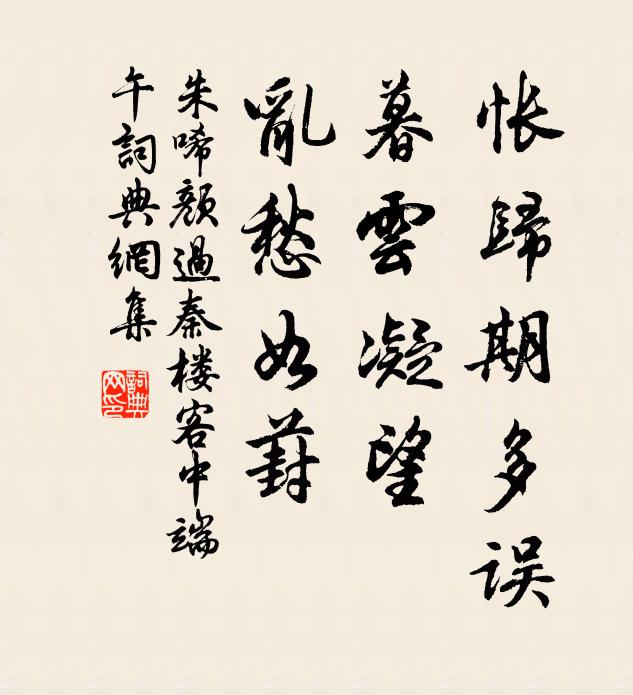 悵歸期多误
暮雲凝望
亂愁如葑
朱唏顏過秦楼客中端
午詞典網集
詞典
网印